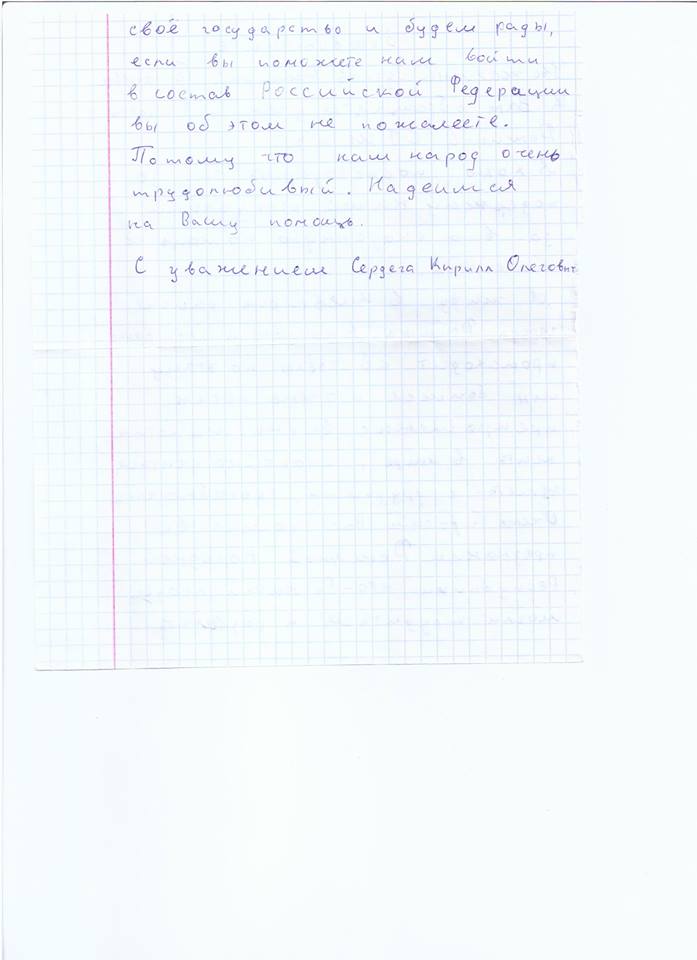 своё государство и будем рады,
если вы поможете нам войти
в состав Российской Федерации
вы об этом не пожалеете.
Потому что наш народ очень
трудолюбивый. Надеимся
на Вашу помощь.
С уважением Сердега Кирилл Олегович